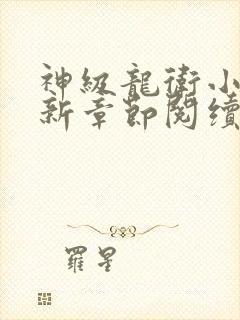 神级龍衛小
新章節閱續
羅星